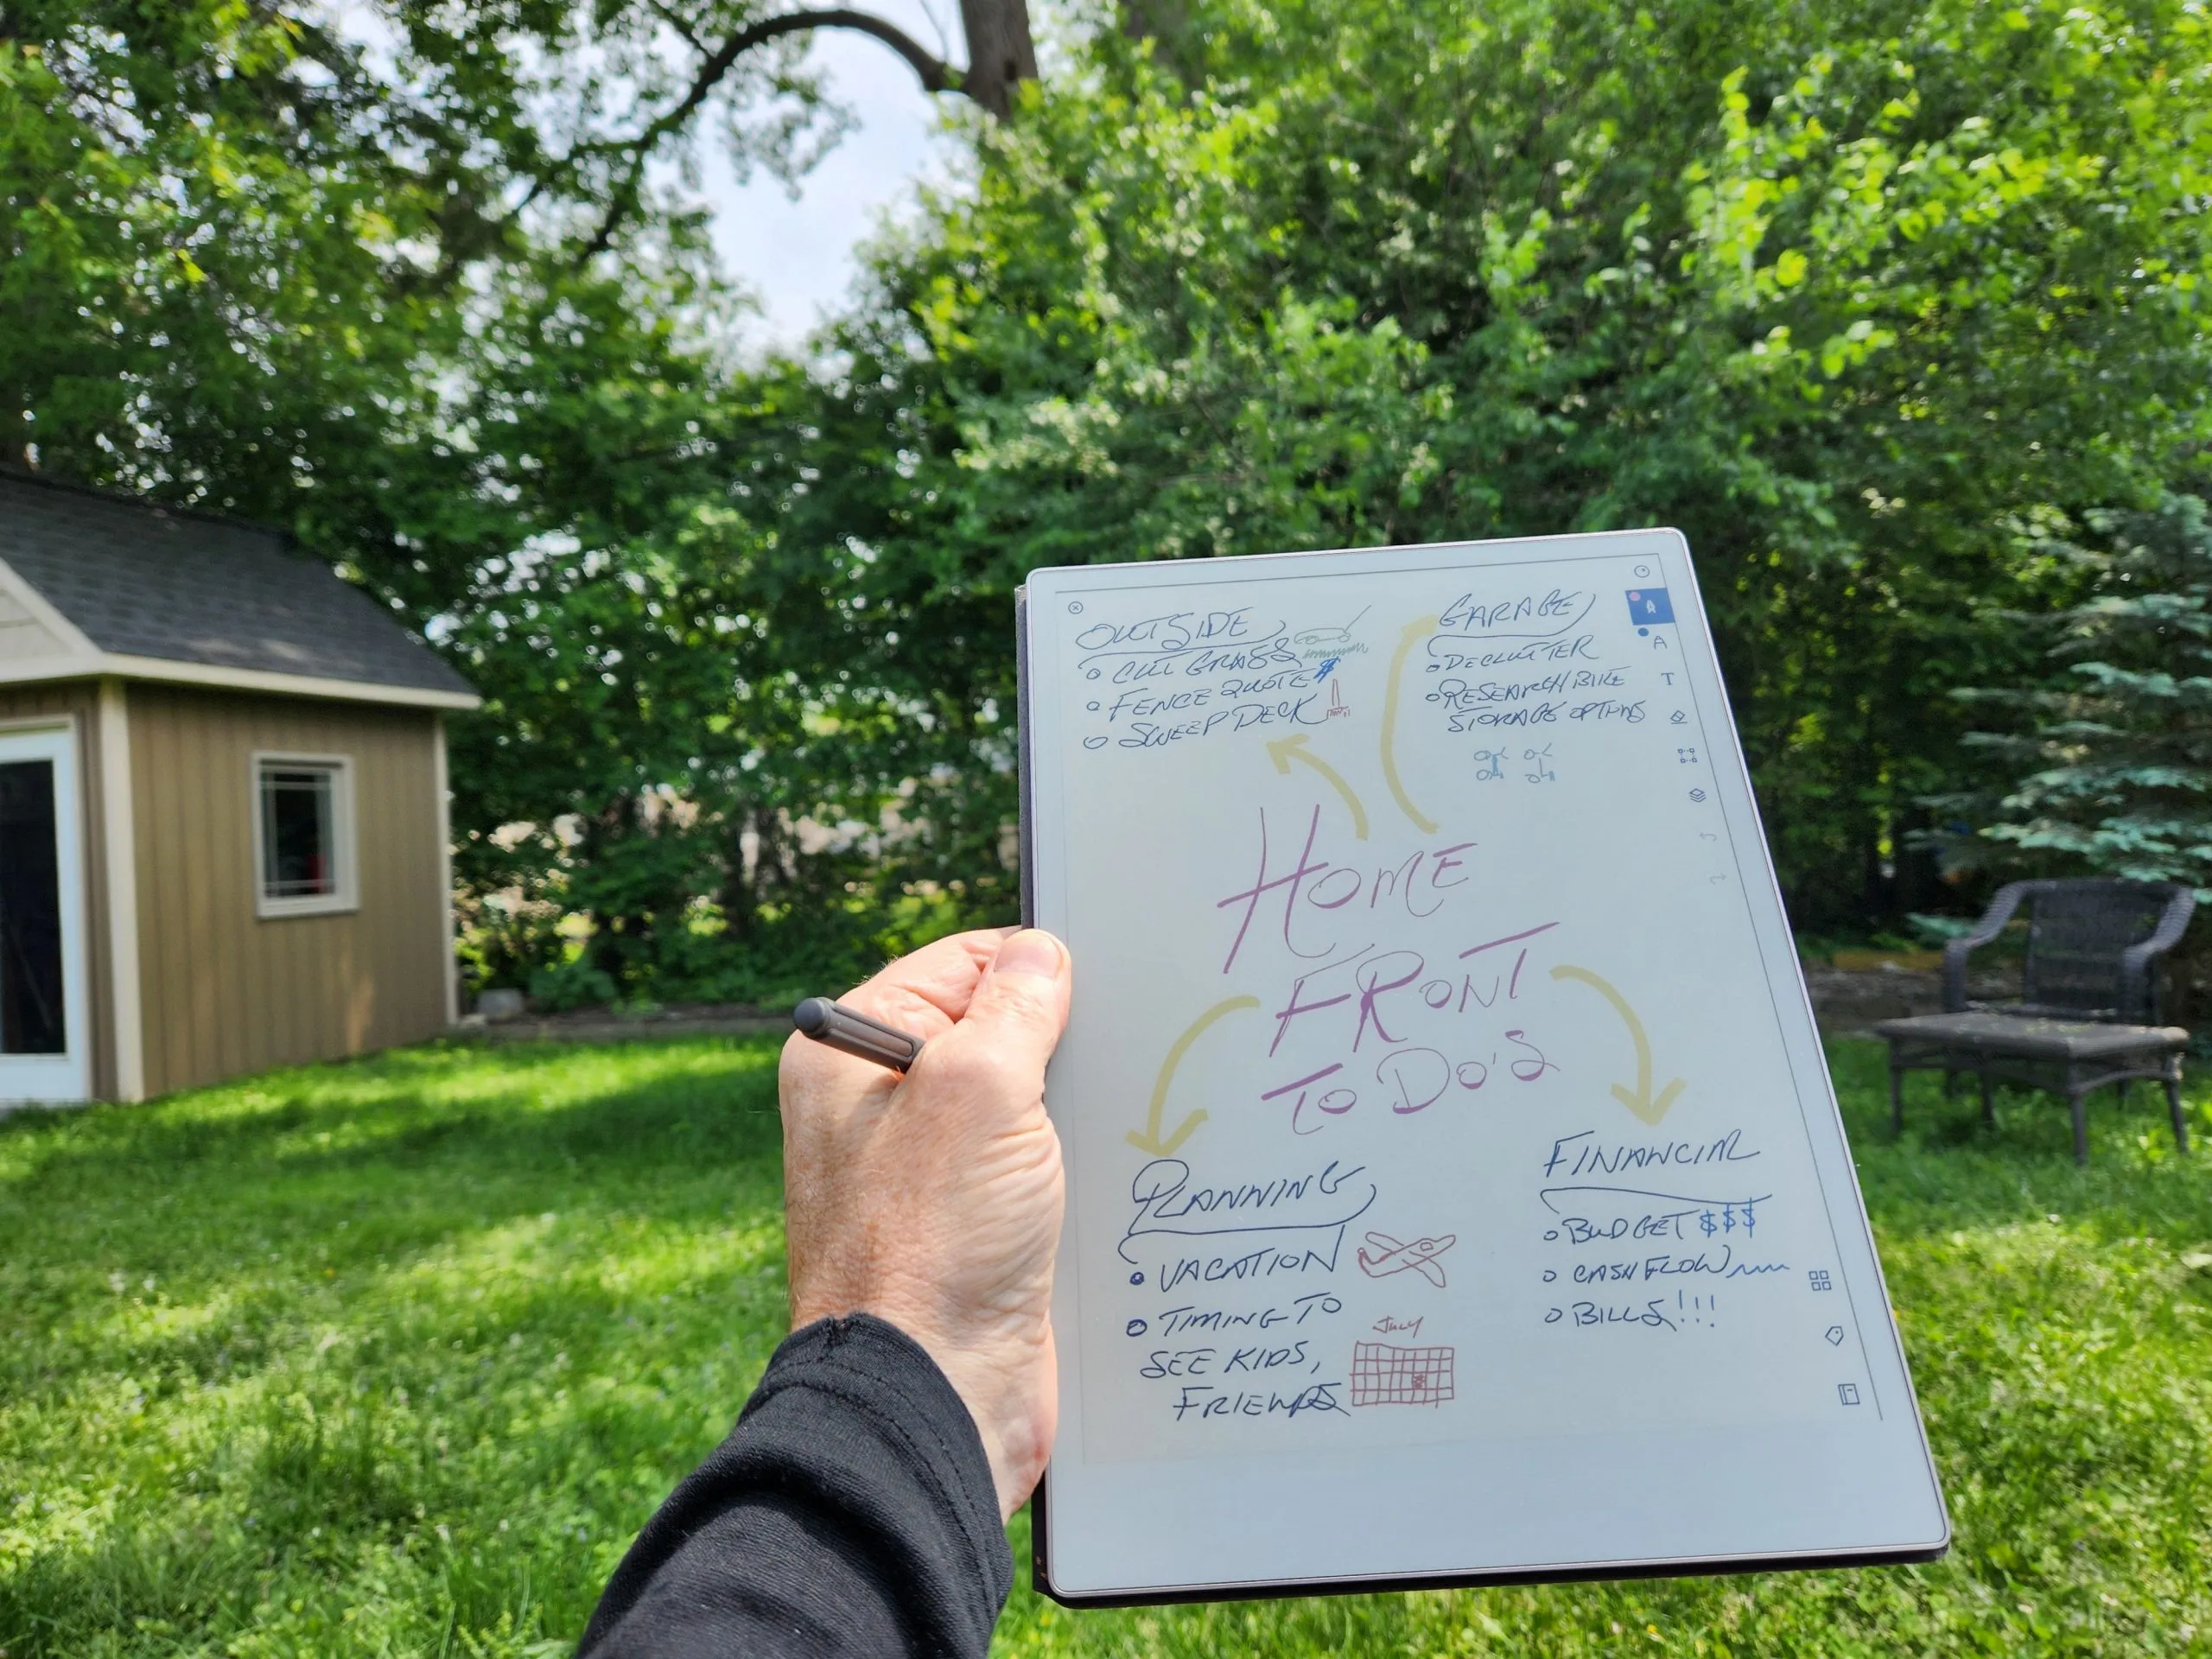 OUTSIDE
CUT GRASS
FENCE QUOTE $
SWEEP DECK
GARAGE
DECLUTTER
RESEARCH BIKE
STORAGE OPTIONS
HOME
FRONT
TO DO'S
PLANNING
VACATION
TIMING TO
SEE KIDS,
FRIENDS
July
FINANCIAL
BUDGET $$$
CASH FLOW
BILLS!!!
A
T